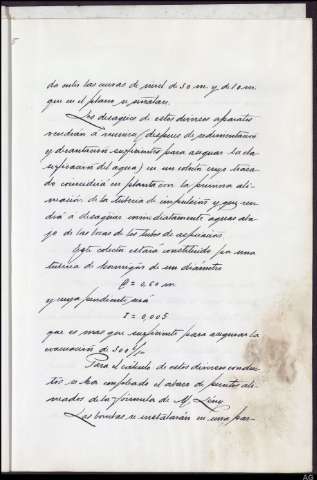 do entre las curvas de nivel de 30 m. y de 10 m.
que en el plano se señalan.
Los desagües de estos diversos aparatos
vendrán a reunirse (despues de sedimentacion
y decantacion suficientes para asegurar la cla-
rificacion del agua) en un colector cuyo traza-
do coincidirá en planta con la primera ali-
neación de la tuberia de impulsion y que ven-
drá a desaguar inmediatamente aguas aba-
jo de las bocas de los tubos de aspiracion.
Este colector estará constituido por una
tuberia de hormigón de un diámetro
Ø = 0,60 m
y cuya pendiente será
I = 0,005
que es mas que suficiente para asegurar la
evacuación de 300 l/s.
Para el cálculo de estos diversos conduc-
tos se ha empleado el abaco de puntos ali-
neados de la fórmula de M.
Las bombas se instalarán en una par-
AG